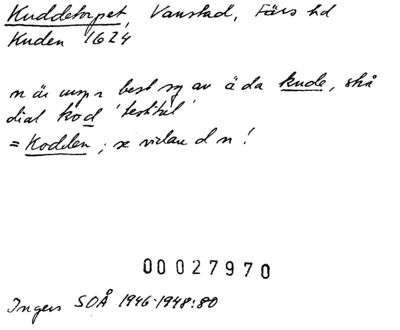 Kuddetorpet, Vanstad, Färs hd
Kuden 1624
n är urspr best sg av ä da kude, skå
dial kod 'testikel'
= Kodden; se vidare d n!
00027970
Ingers SOÅ 1946-1948:80